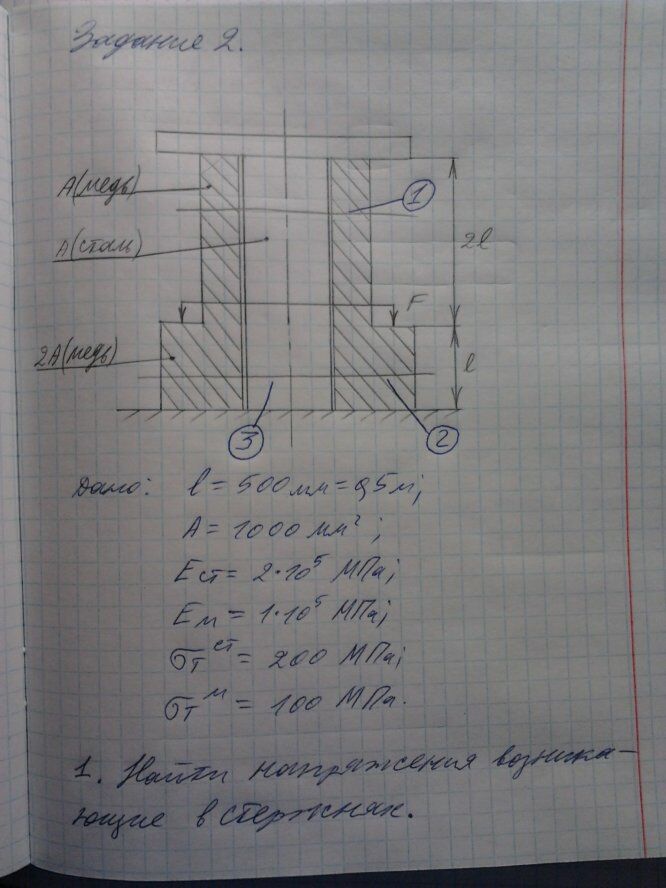 Задание 2.
А(медь)
1
А(сталь)
2l
F
2А(медь)
l
3
2
Дано: l = 500мм = 0,5м;
А = 1000 мм²;
Eст = 2·10⁵ МПа;
Eм = 1·10⁵ МПа;
σт^ст = 200 МПа;
σт^м = 100 МПа.
1. Найти напряжения возника-
ющие в стержнях.